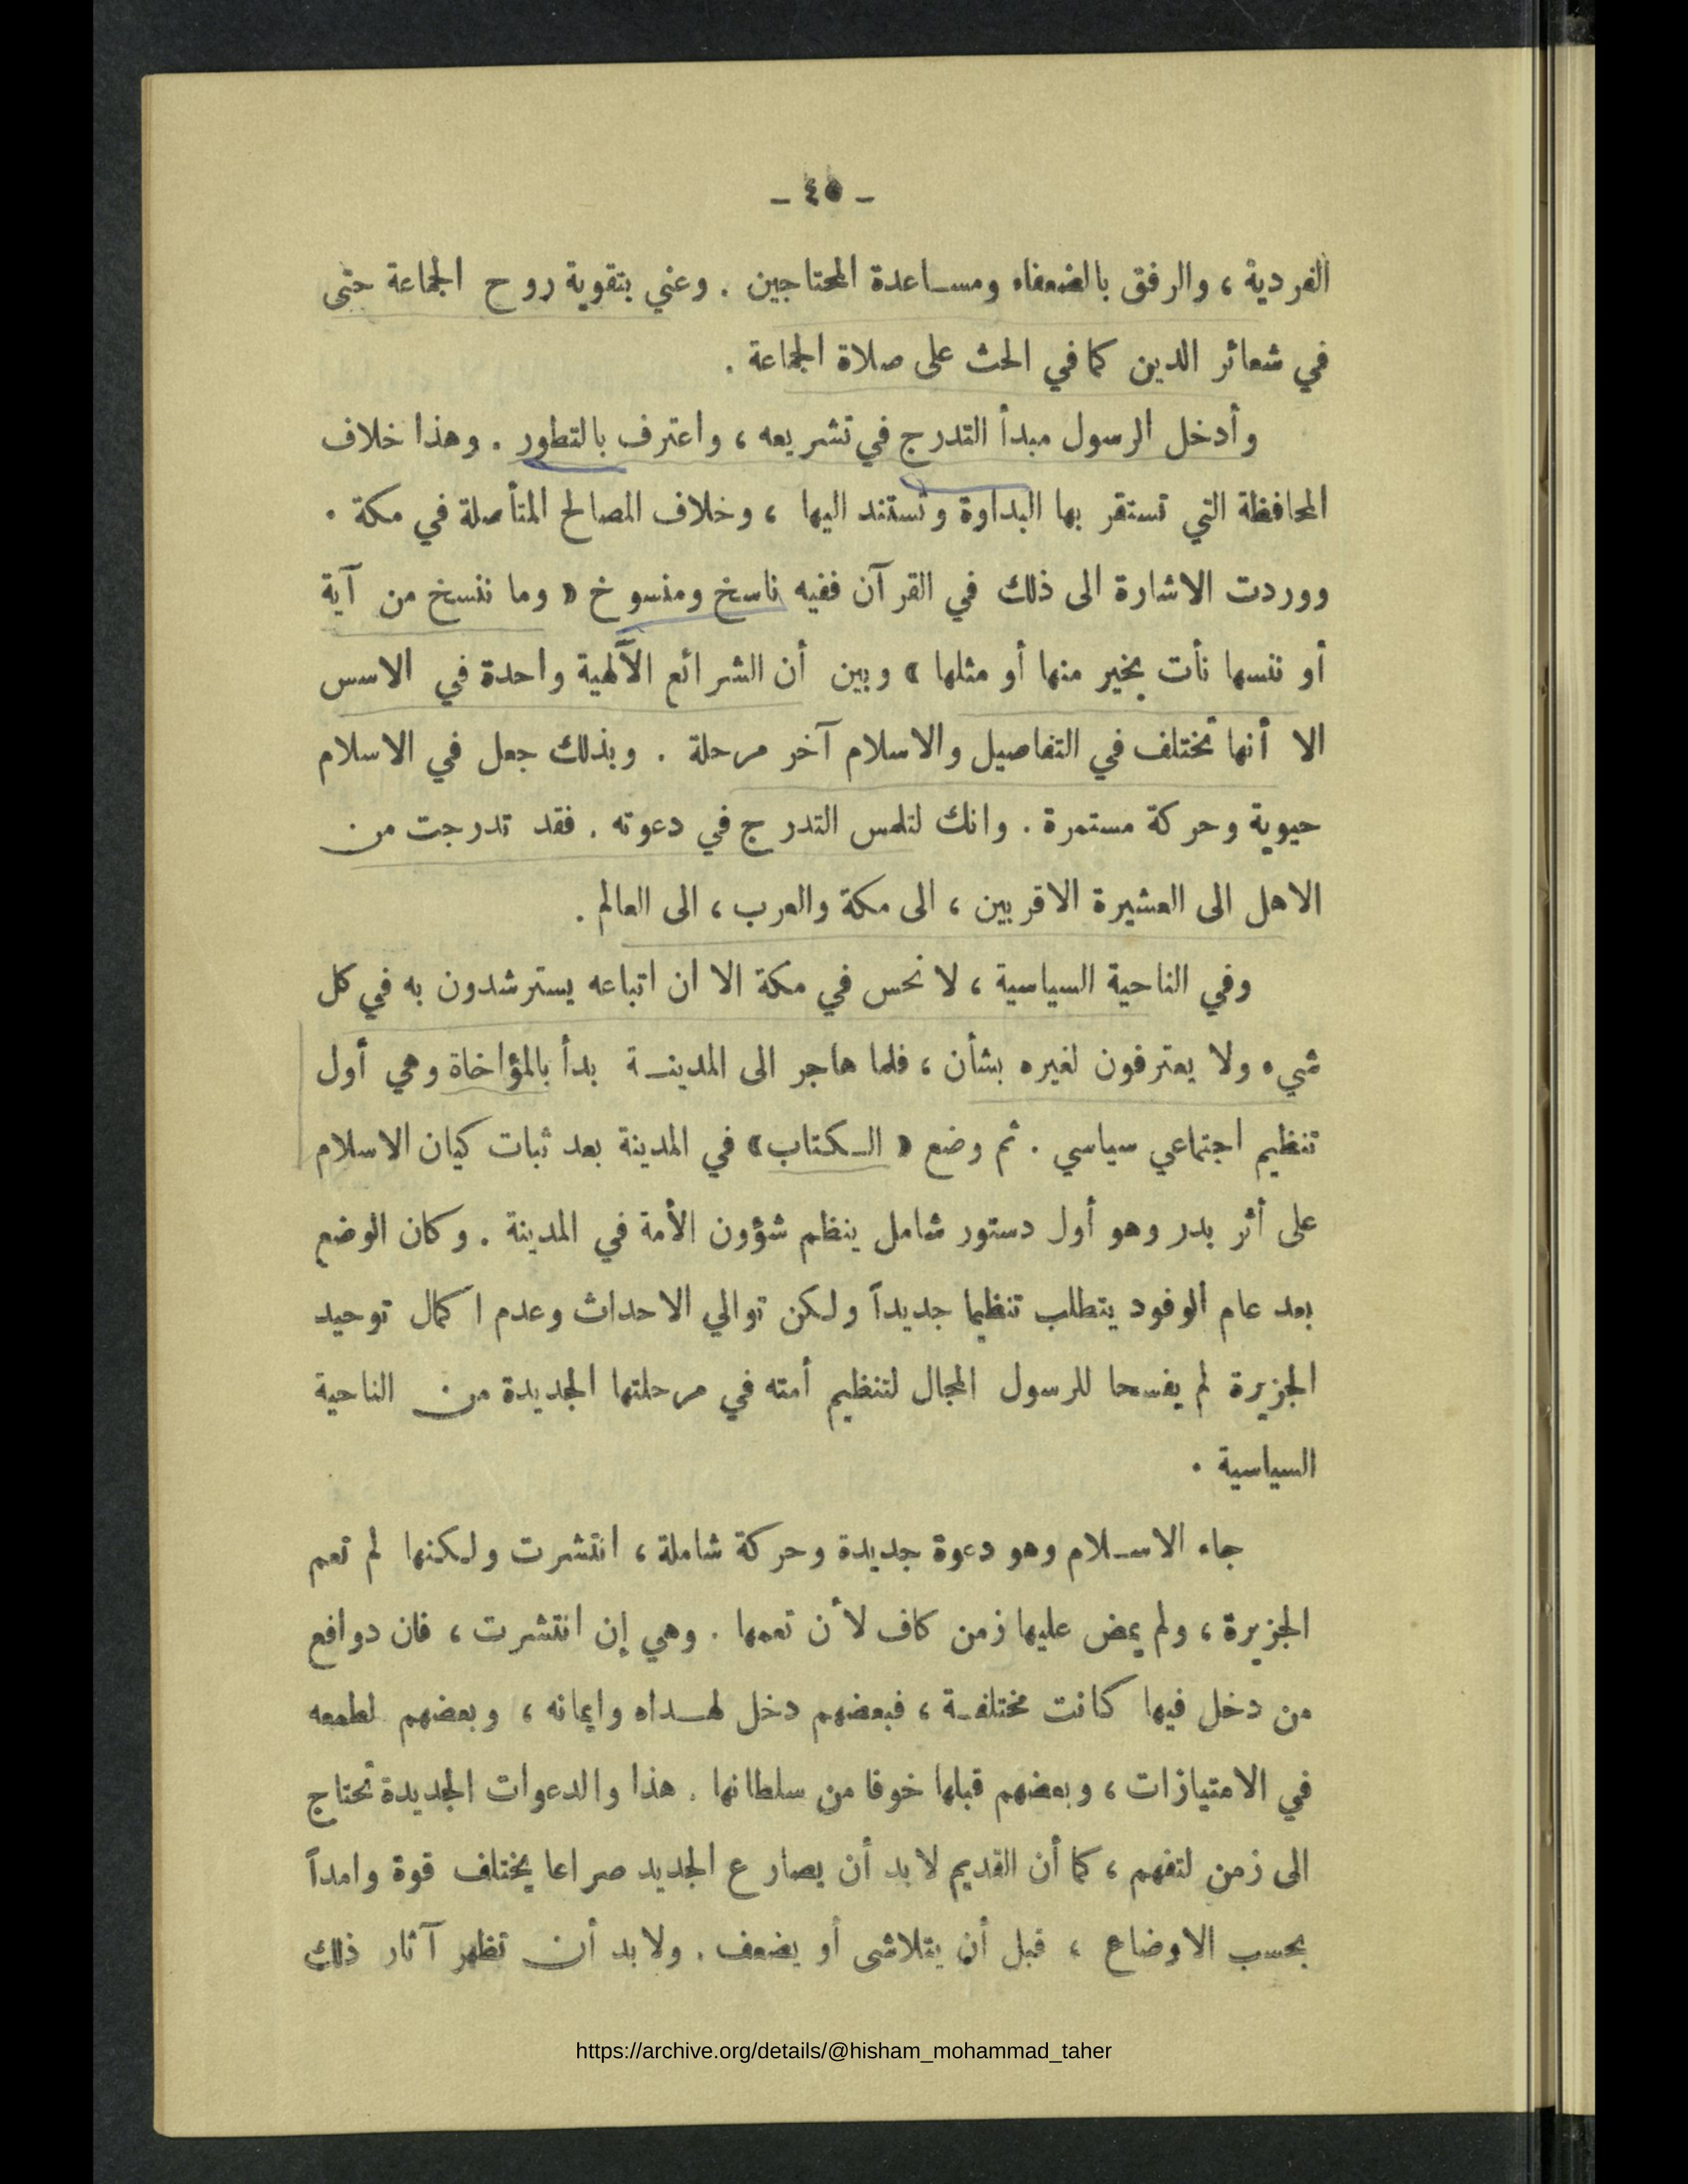 - ٤٥ -
الفردية ، والرفق بالضعفاء ومساعدة المحتاجين . وعني بتقوية روح الجماعة حتى
في شعائر الدين كما في الحث على صلاة الجماعة .
وأدخل الرسول مبدأ التدرج في تشريعه ، واعترف بالتطور . وهذا خلاف
المحافظة التي تستقر بها البداوة وتستند اليها ، وخلاف المصالح المتأصلة في مكة .
ووردت الاشارة الى ذلك في القرآن ففيه ناسخ ومنسوخ « وما ننسخ من آية
أو ننسها نأت بخير منها أو مثلها » وبين أن الشرائع الآلهية واحدة في الاسس
الا أنها تختلف في التفاصيل والاسلام آخر مرحلة . وبذلك جعل في الاسلام
حيوية وحركة مستمرة . وانك لتلمس التدرج في دعوته . فقد تدرجت من
الاهل الى العشيرة الاقربين ، الى مكة والعرب ، الى العالم .
وفي الناحية السياسية ، لا نحس في مكة الا ان اتباعه يسترشدون به في كل
شيء ولا يعترفون لغيره بشأن ، فلما هاجر الى المدينة بدأ بالمؤاخاة وهي أول
تنظيم اجتماعي سياسي . ثم وضع « الكتاب » في المدينة بعد ثبات كيان الاسلام
على أثر بدر وهو أول دستور شامل ينظم شؤون الأمة في المدينة . وكان الوضع
بعد عام الوفود يتطلب تنظيما جديداً ولكن توالي الاحداث وعدم اكمال توحيد
الجزيرة لم يفسحا للرسول المجال لتنظيم أمته في مرحلتها الجديدة من الناحية
السياسية .
جاء الاسلام وهو دعوة جديدة وحركة شاملة ، انتشرت ولكنها لم تعم
الجزيرة ، ولم يمض عليها زمن كاف لأن تعمها . وهي إن انتشرت ، فان دوافع
من دخل فيها كانت مختلفة ، فبعضهم دخل لهداه وايمانه ، وبعضهم لطمعه
في الامتيازات ، وبعضهم قبلها خوفا من سلطانها . هذا والدعوات الجديدة تحتاج
الى زمن لتفهم ، كما أن القديم لابد أن يصارع الجديد صراعا يختلف قوة وامداً
بحسب الاوضاع ، قبل أن يتلاشى أو يضعف . ولابد أن تظهر آثار ذلك
https://archive.org/details/@hisham_mohammad_taher